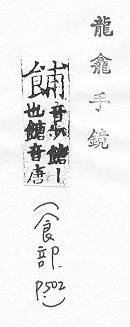 龍龕手鏡
餔
音步餹丨
也餹音唐
(食部 p.502)